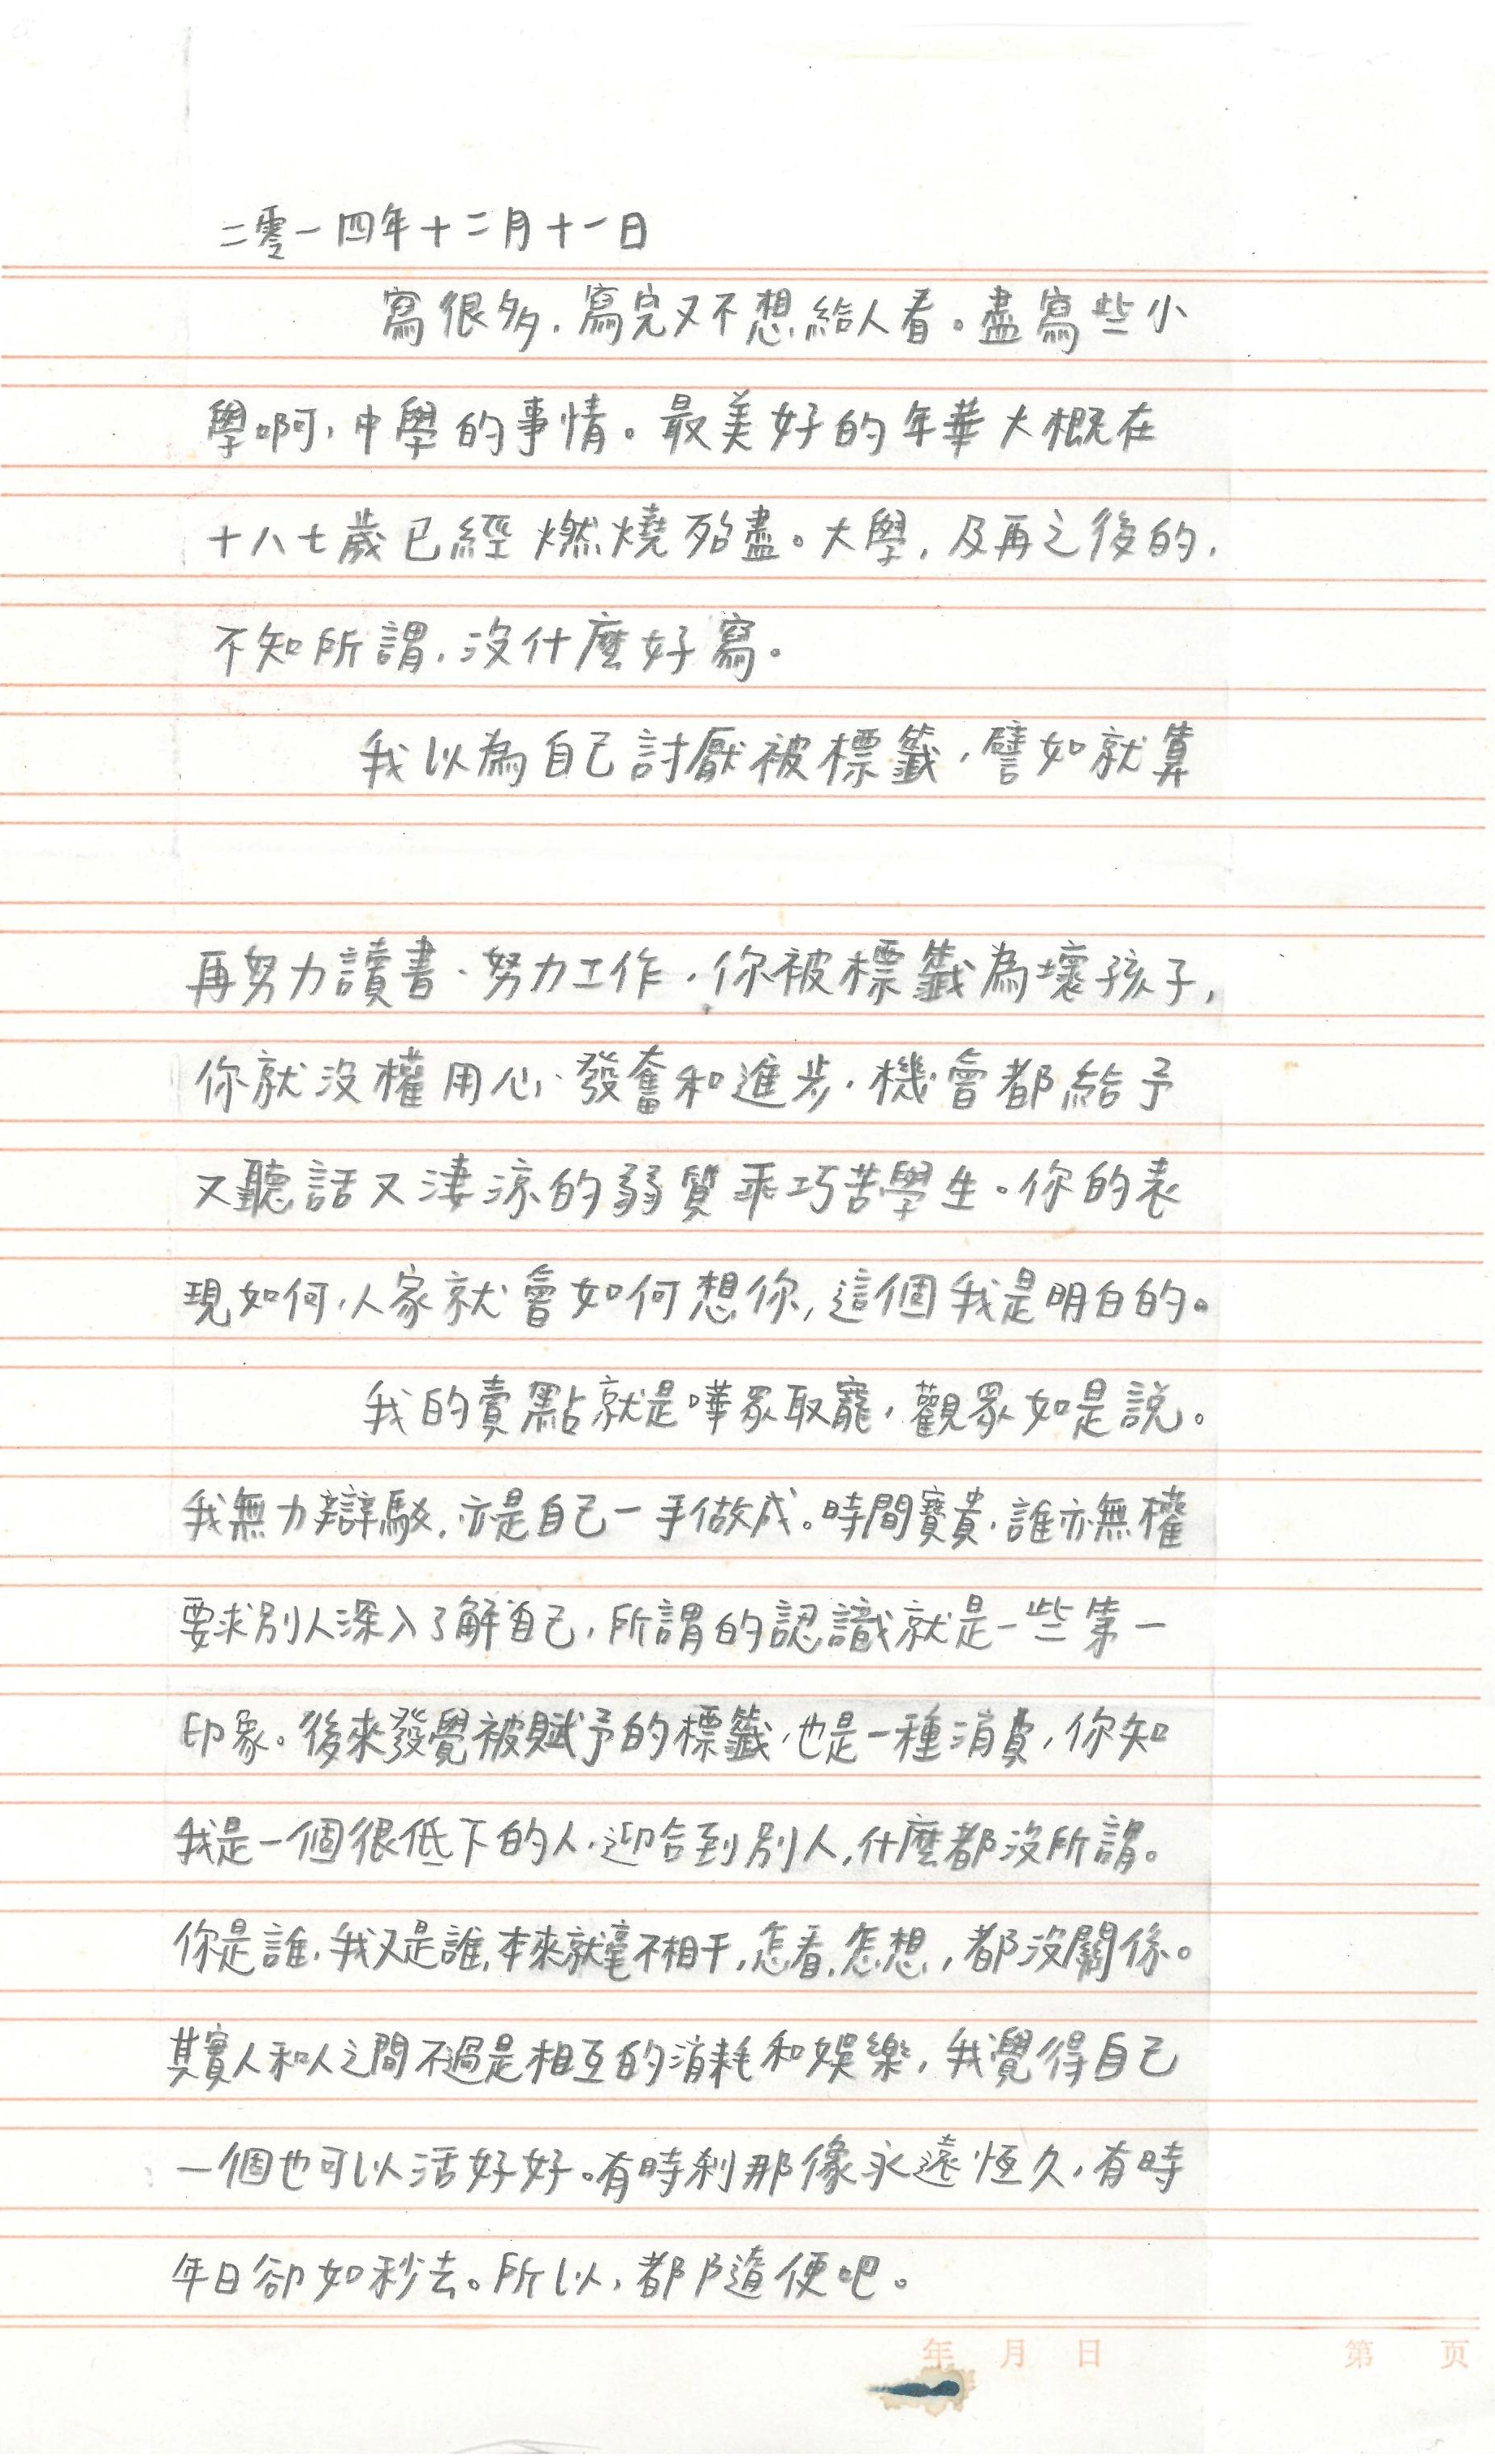 二零一四年十二月十一日
寫很多，寫完又不想給人看。盡寫些小
學啊，中學的事情。最美好的年華大概在
十八七歲已經燃燒殆盡。大學，及再之後的，
不知所謂，沒什麼好寫。
我以為自己討厭被標籤，譬如就算
再努力讀書、努力工作，你被標籤為壞孩子，
你就沒權用心、發奮和進步，機會都給予
又聽話又淒涼的弱質乖巧苦學生。你的表
現如何，人家就會如何想你，這個我是明白的。
我的賣點就是嘩眾取寵，觀眾如是說。
我無力辯駁，亦是自己一手做成。時間寶貴，誰亦無權
要求別人深入了解自己，所謂的認識就是一些第一
印象。後來發覺被賦予的標籤，也是一種消費，你知
我是一個很低下的人，迎合到別人，什麼都沒所謂。
你是誰，我又是誰，本來就毫不相干，怎看，怎想，都沒關係。
其實人和人之間不過是相互的消耗和娛樂，我覺得自己
一個也可以活好好。有時剎那像永遠恆久，有時
年日卻如秒去。所以，都隨便吧。
年 月 日 第 页